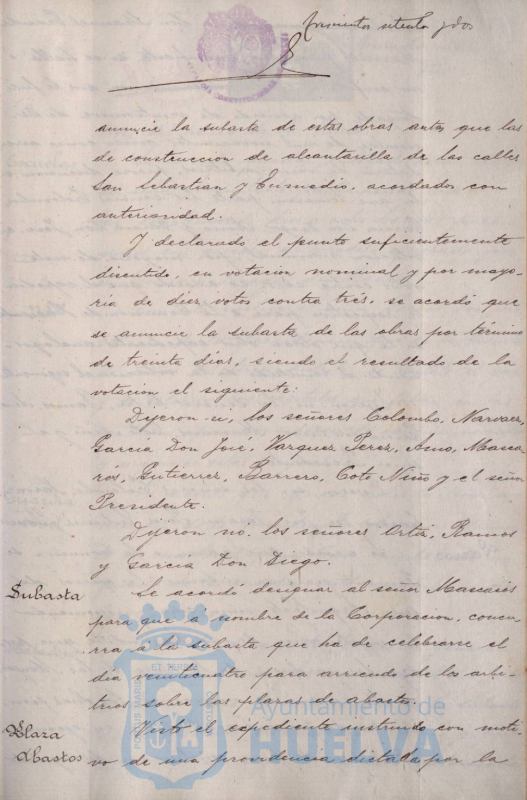 trescientos setenta y dos
anuncie la subasta de estas obras antes que las
de construccion de alcantarilla de las calles
San Sebastian y Enmedio, acordados con
anterioridad.
Y declarado el punto suficientemente
discutido, en votacion nominal y por mayo-
ria de diez votos contra trés, se acordó que
se anuncie la subasta de las obras por término
de treinta días, siendo el resultado de la
votacion el siguiente:
Dijeron si, los señores Colombo, Narvaez,
Garcia Don José, Vazquez Perez, Amo, Masca-
rós, Gutierrez, Barrero, Coto Niño y el señor
Presidente.
Dijeron no, los señores Ortiz, Ramos
y Garcia Don Diego.
Subasta
Se acordó designar al señor Mascarós
para que a nombre de la Corporacion, concu-
rra á la subasta que ha de celebrarse el
día veinticuatro para arriendo de los arbi-
trios sobre las plazas de abasto.
Plaza
Abastos
Visto el expediente instruido con moti-
vo de una providencia dictada por la
PORTUS MARIS ET TERRÆ
Ayuntamiento de
HUELVA